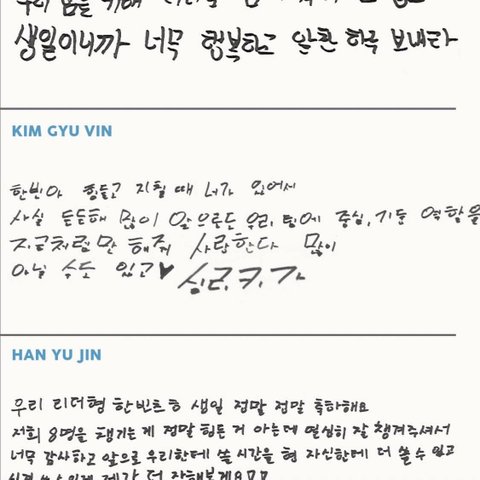 우리 팀을 위해
생일이니까 너무 행복하고 알찬 하루 보내라
KIM GYU VIN
한빈아 힘들고 지칠 때 너가 있어서
사실 든든해 많이 앞으로도 우리 팀에 중심, 기둥 역할을
지금처럼만 해줘 사랑한다 많이
아닐 수도 있고♥
HAN YU JIN
우리 리더형 한빈츠ㅎ 생일 정말 정말 축하해요
저희 8명을 챙기는 게 정말 힘든 거 아는데 열심히 잘 챙겨주셔서
너무 감사하고 앞으로 우리한테 쓸 시간을 형 자신한테 더 쓸 수 있고
제가 더 잘해볼게요